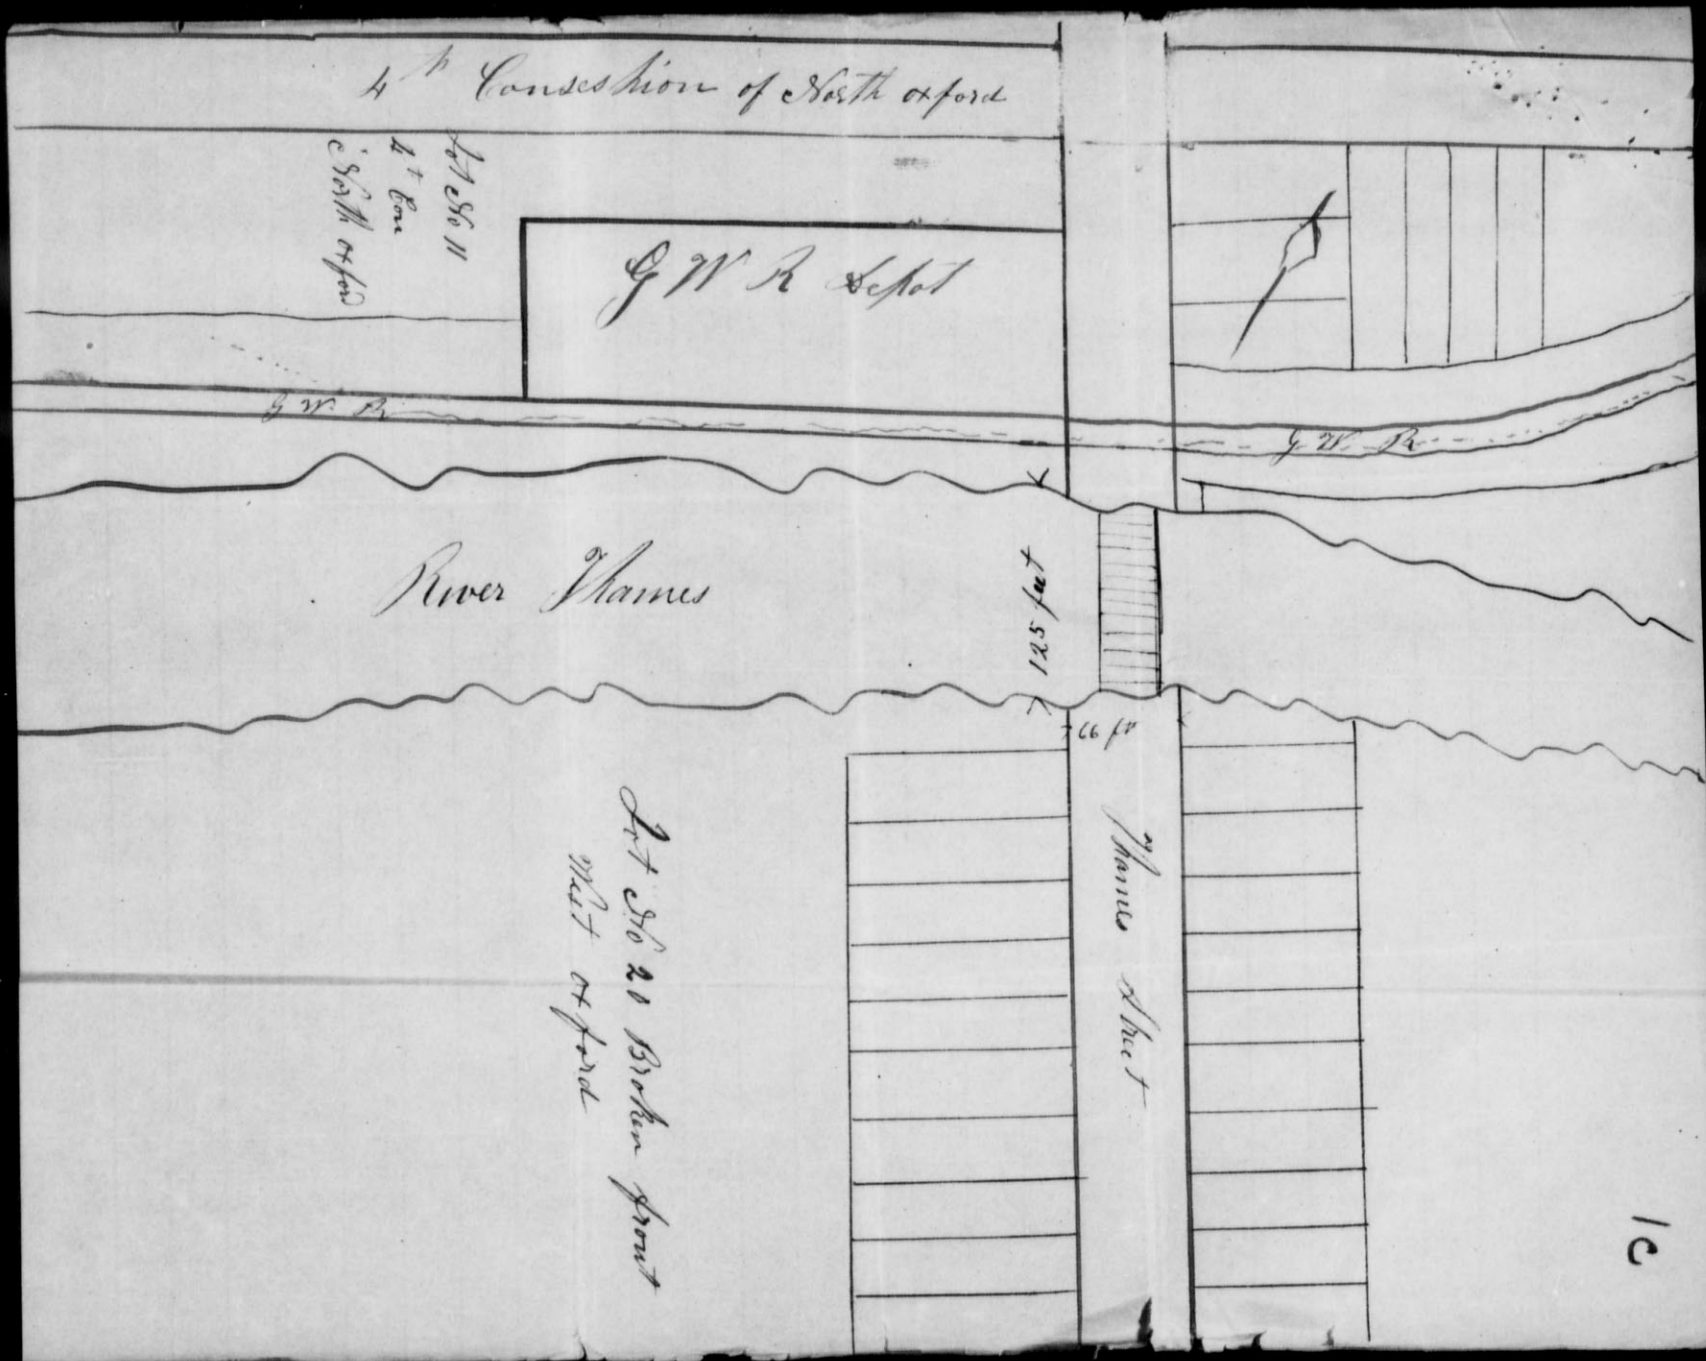 4th Conseshion of North oxford
Lot No 11
4t Con
North oxford
G W R Depot
G W R
G W R
River Thames
125 feet
66 ft
Thames Street
Lot No 20 Broken front
West oxford
1c